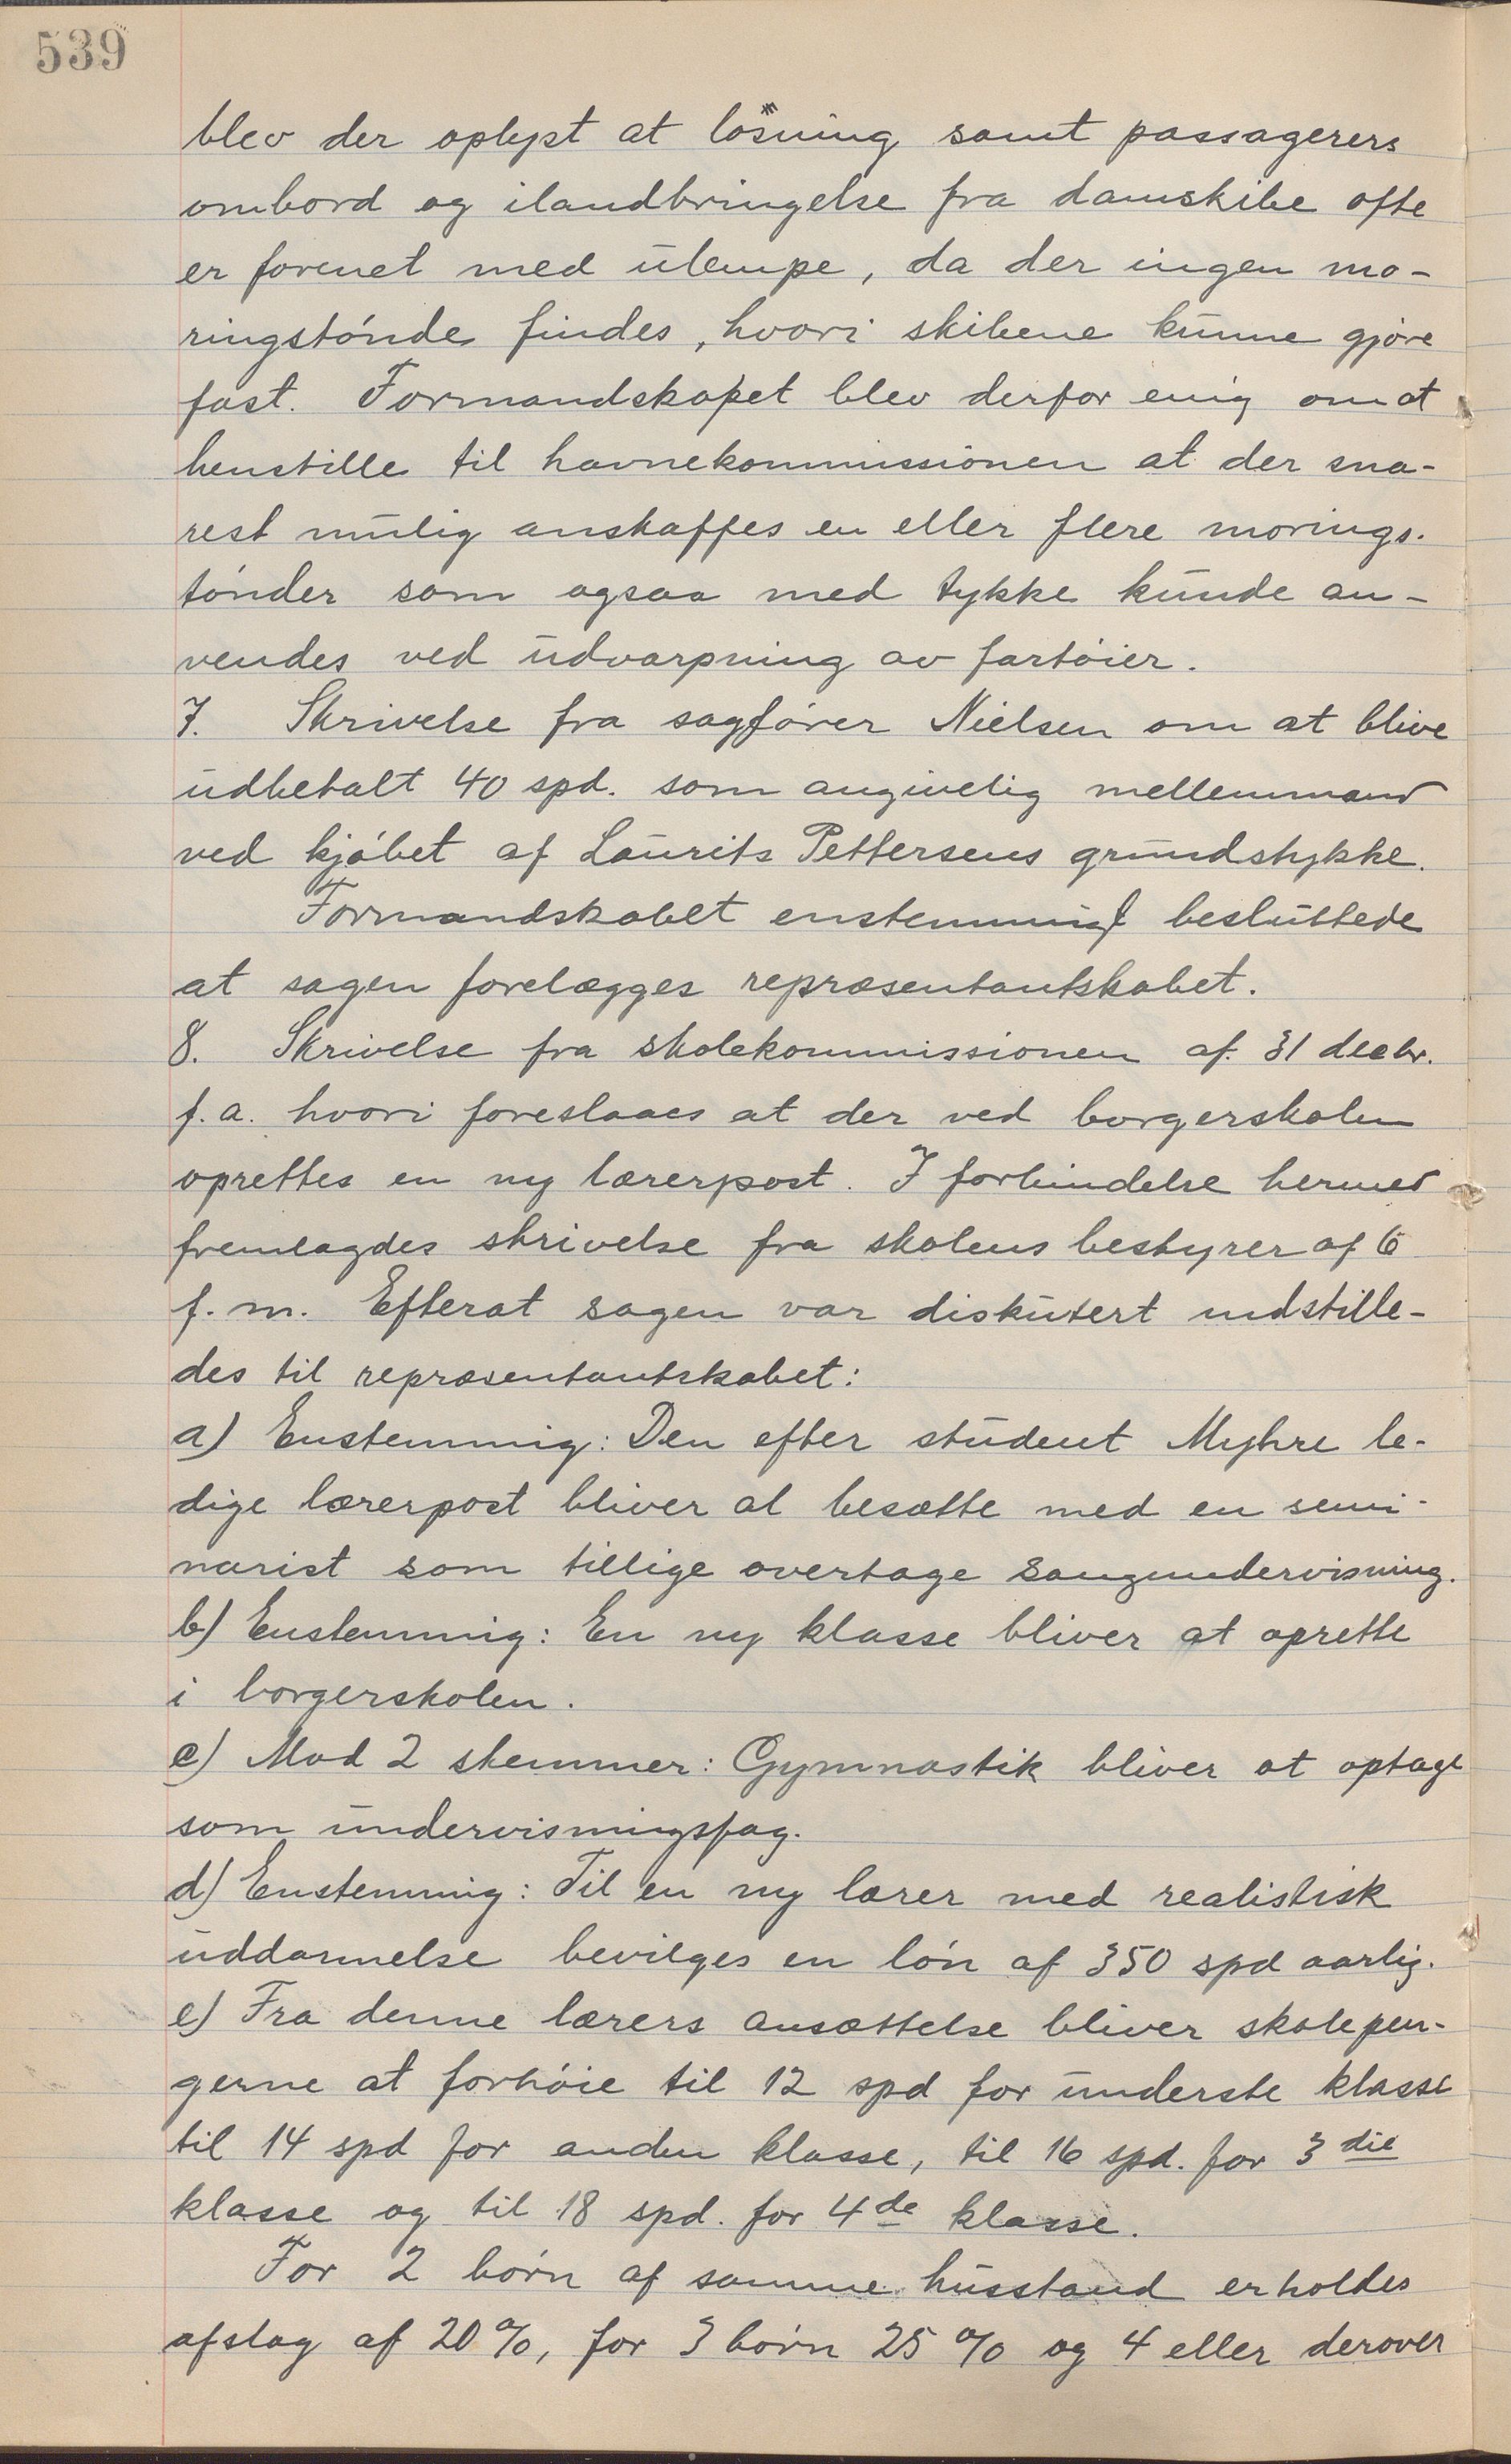 539
blev der oplyst at løsning samt passagerers
ombord og ilandbringelse fra damskibe ofte
er forenet med ulempe, da der ingen mo-
ringstønde findes, hvori skibene kunne gjøre
fast. Formandskapet blev derfor enig om at
henstille til havnekommissionen at der sna-
rest mulig anskaffes en eller flere morings-
tønder som ogsaa med tykke kunde an-
vendes ved udvarpning av fartøier.
7. Skrivelse fra sagfører Nielsen om at blive
udbetalt 40 spd. som angivelig mellemmand
ved kjøbet af Laurits Pettersens grundstykke.
Formandskabet enstemmigt besluttede
at sagen forelægges repræsentantskabet.
8. Skrivelse fra skolekommissionen af 31 decbr.
f.a. hvori foreslaaes at der ved borgerskolen
oprettes en ny lærerpost. I forbindelse hermed
fremlagdes skrivelse fra skolens bestyrer af 6
f.m. Efterat sagen var diskutert indstille-
des til repræsentantskabet:
a) Enstemmig: Den efter student Myhre le-
dige lærerpost bliver at besætte med en semi-
narist som tillige overtage sangundervisning.
b) Enstemmig: En ny klasse bliver at oprette
i borgerskolen.
c) Mod 2 stemmer: Gymnastik bliver at optage
som undervisningsfag.
d) Enstemmig: Til en ny lærer med realistisk
uddannelse bevilges en løn af 350 spd aarlig.
e) Fra denne lærers ansættelse bliver skolepen-
gerne at forhøie til 12 spd for underste klasse
til 14 spd for anden klasse, til 16 spd. for 3die
klasse og til 18 spd. for 4de klasse.
For 2 børn af samme husstand erholdes
afslag af 20%, for 3 børn 25% og 4 eller derover